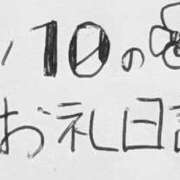 /10の
お礼日